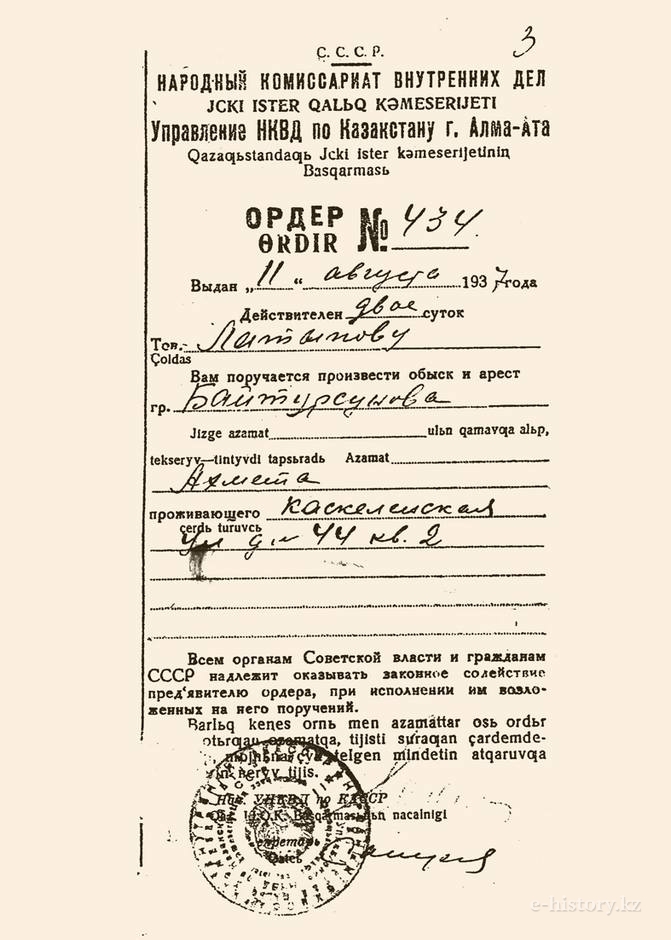 3
С. С. С. Р.
НАРОДНЫЙ КОМИССАРИАТ ВНУТРЕННИХ ДЕЛ
JCKI ISTER QALЬQ KƏMESERIJETI
Управление НКВД по Казакстану г. Алма-Ата
Qazaqьstandaqь Jcki ister kəmeserijetiniꞑ
Basqarmasь
ОРДЕР № 434.
ƟRDIR
Выдан „11“ августа 1937 года
Действителен двое суток
Тов. Латыпову
Çoldas
Вам поручается произвести обыск и арест
гр. Байтурсунова
Jizge azamat ulьn qamavqa alьp,
tekseryv—tintyvdi tapsьradь Azamat
Ахмета
проживающего Каскеленская
çerdь turuvcь
ул д м 44 кв. 2
Всем органам Советской власти и гражданам
СССР надлежит оказывать законное содействие
пред'явителю ордера, при исполнении им возло-
женных на него поручений.
Barlьq keꞑes ornь men azamattar osь ordьr
otьrqan azamatqa, tijisti suraqan çardemde-
telgen mindetin atqaruvqa
beryv tijis.
Нач. УНКВД по КАССР
Basqarmasьnьꞑ nacalnigi
Секретарь
Qatcь
e-history.kz